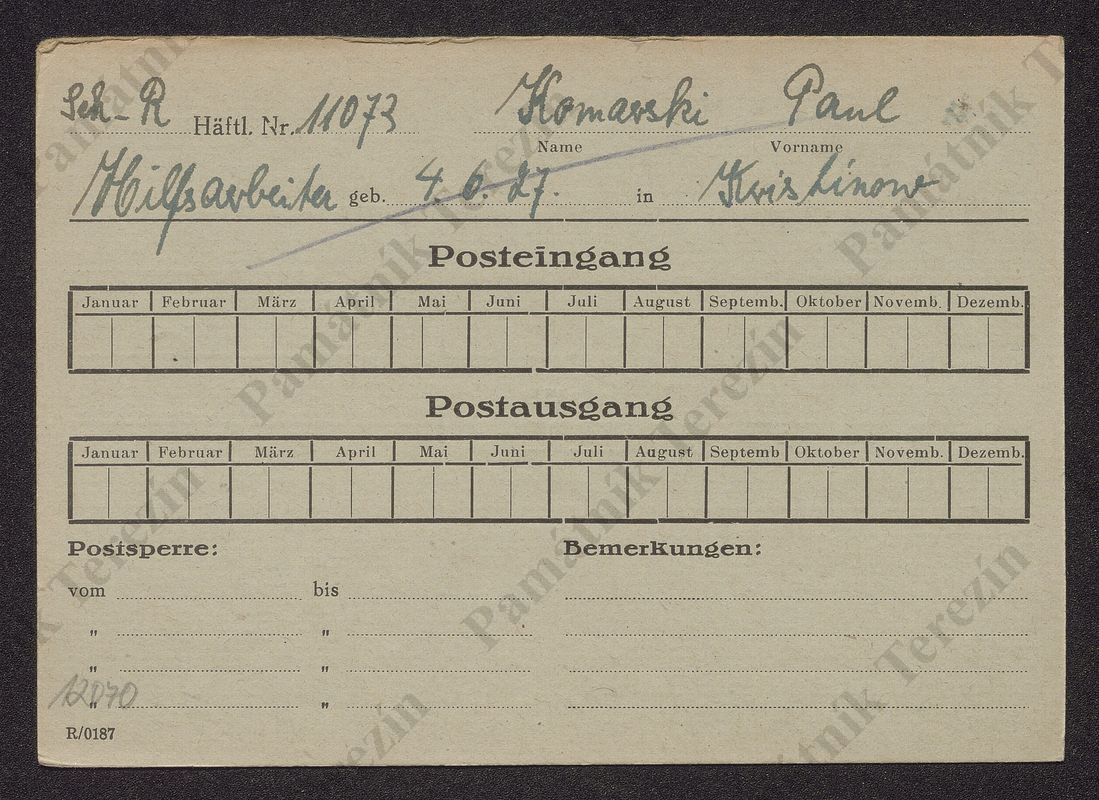 Sch-R Häftl. Nr. 11073 Komarski Paul
Name Vorname
Hilfsarbeiter geb. 4. 6. 27. in Kristinow
Posteingang
Januar Februar März April Mai Juni Juli August Septemb. Oktober Novemb. Dezemb.
Postausgang
Januar Februar März April Mai Juni Juli August Septemb Oktober Novemb. Dezemb.
Postsperre: Bemerkungen:
vom bis
" "
" "
" "
12070
R/0187
Památník Terezín